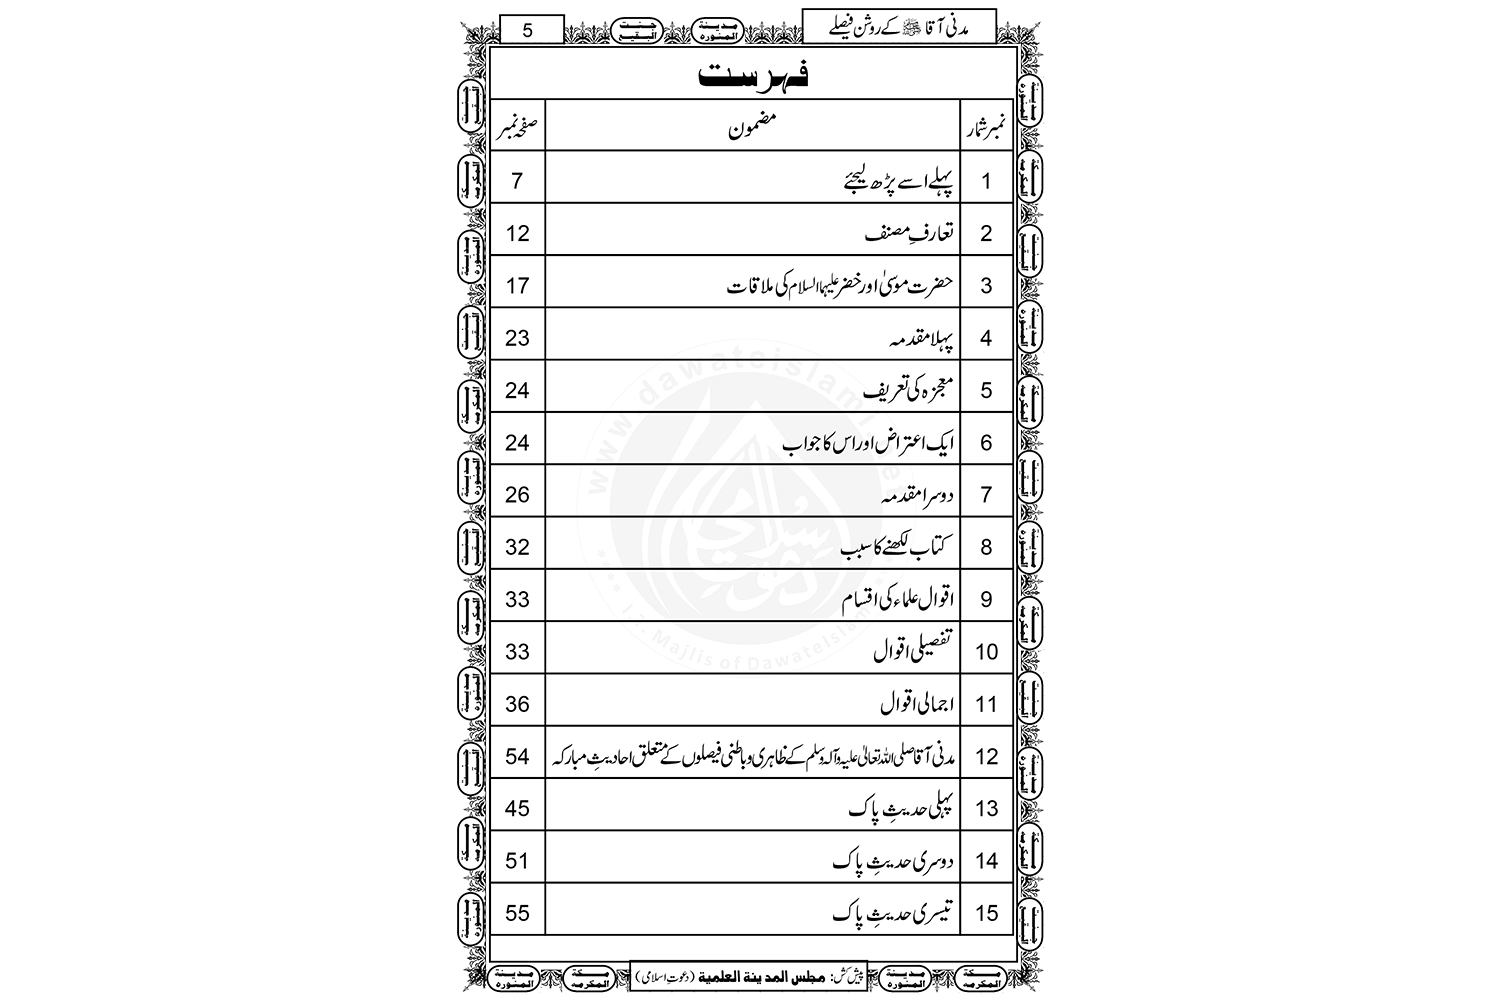 مدنی آقا ﷺ کے روشن فیصلے
5
جنت البقیع
مدینۃ المنورہ
فہرست
نمبر شمار مضمون صفحہ نمبر
1 پہلے اسے پڑھ لیجئے 7
2 تعارفِ مصنف 12
3 حضرت موسیٰ اور خضر علیہما السلام کی ملاقات 17
4 پہلا مقدمہ 23
5 معجزہ کی تعریف 24
6 ایک اعتراض اور اس کا جواب 24
7 دوسرا مقدمہ 26
8 کتاب لکھنے کا سبب 32
9 اقوال علماء کی اقسام 33
10 تفصیلی اقوال 33
11 اجمالی اقوال 36
12 مدنی آقا صلی اللہ تعالیٰ علیہ وآلہ وسلم کے ظاہری و باطنی فیصلوں کے متعلق احادیثِ مبارکہ 54
13 پہلی حدیثِ پاک 45
14 دوسری حدیثِ پاک 51
15 تیسری حدیثِ پاک 55
پیش کش: مجلس المدینۃ العلمیۃ (دعوتِ اسلامی)
مکۃ المکرمہ
مدینۃ المنورہ
www.dawateislami.net
I.T. Majlis of DawateIslami